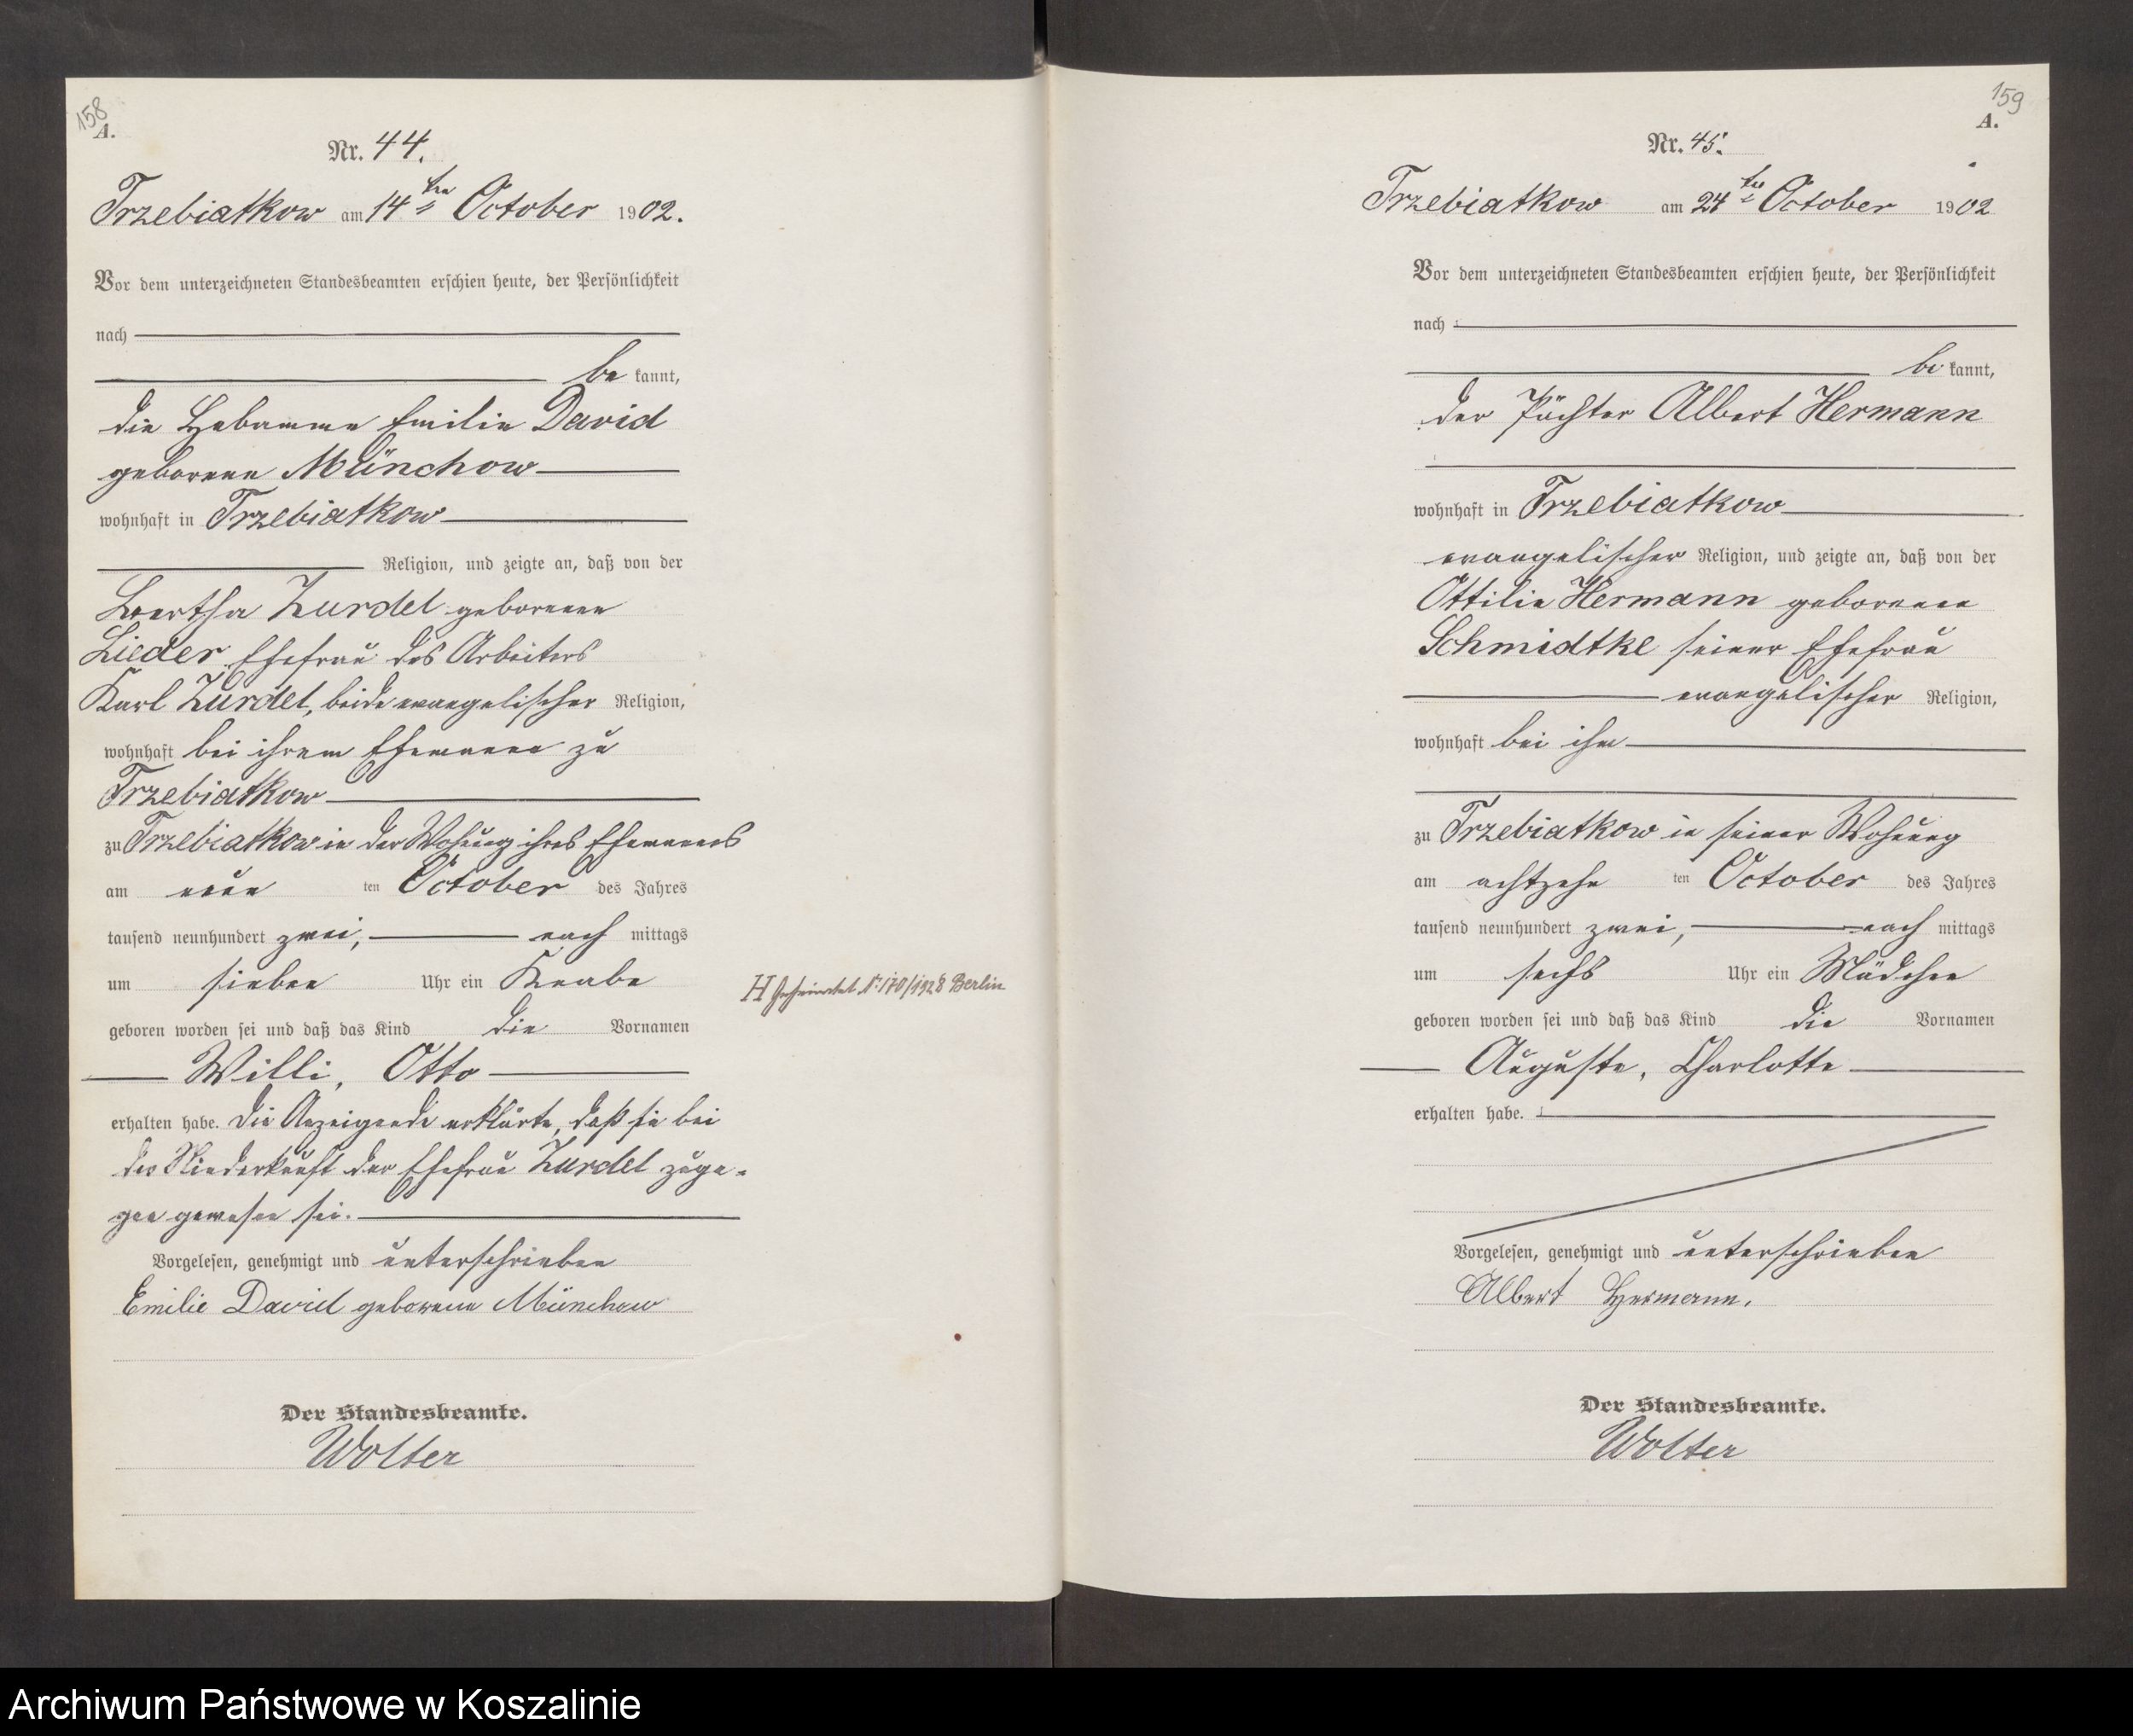 158
A.
Nr. 44.
Trzebiatkow am 14ten October 1902.
Vor dem unterzeichneten Standesbeamten erschien heute, der Persönlichkeit
nach
be kannt,
die Hebamme Emilie David
geborene Münchow
wohnhaft in Trzebiatkow
Religion, und zeigte an, daß von der
Bertha Zurdel geborenen
Lieder Ehefrau des Arbeiters
Karl Zurdel, beide evangelischer Religion,
wohnhaft bei ihrem Ehemanne zu
Trzebiatkow
zu Trzebiatkow in der Wohnung ihres Ehemannes
am neun ten October des Jahres
tausend neunhundert zwei, nach mittags
um sieben Uhr ein Knabe
geboren worden sei und daß das Kind die Vornamen
Willi, Otto
erhalten habe. Die Anzeigende erklärte, daß sie bei
der Niederkunft der Ehefrau Zurdel zuge-
gen gewesen sei.
Vorgelesen, genehmigt und unterschrieben
Emilie David geborene Münchow
Der Standesbeamte.
Wolter
H Geheiratet Nr. 170/1928 Berlin
159
A.
Nr. 45.
Trzebiatkow am 24ten October 1902
Vor dem unterzeichneten Standesbeamten erschien heute, der Persönlichkeit
nach
be kannt,
der Pächter Albert Hermann
wohnhaft in Trzebiatkow
evangelischer Religion, und zeigte an, daß von der
Ottilie Hermann geborenen
Schmidtke seiner Ehefrau
evangelischer Religion,
wohnhaft bei ihm
zu Trzebiatkow in seiner Wohnung
am achtzehn ten October des Jahres
tausend neunhundert zwei, nach mittags
um sechs Uhr ein Mädchen
geboren worden sei und daß das Kind die Vornamen
Auguste, Charlotte
erhalten habe.
Vorgelesen, genehmigt und unterschrieben
Albert Hermann.
Der Standesbeamte.
Wolter
Archiwum Państwowe w Koszalinie